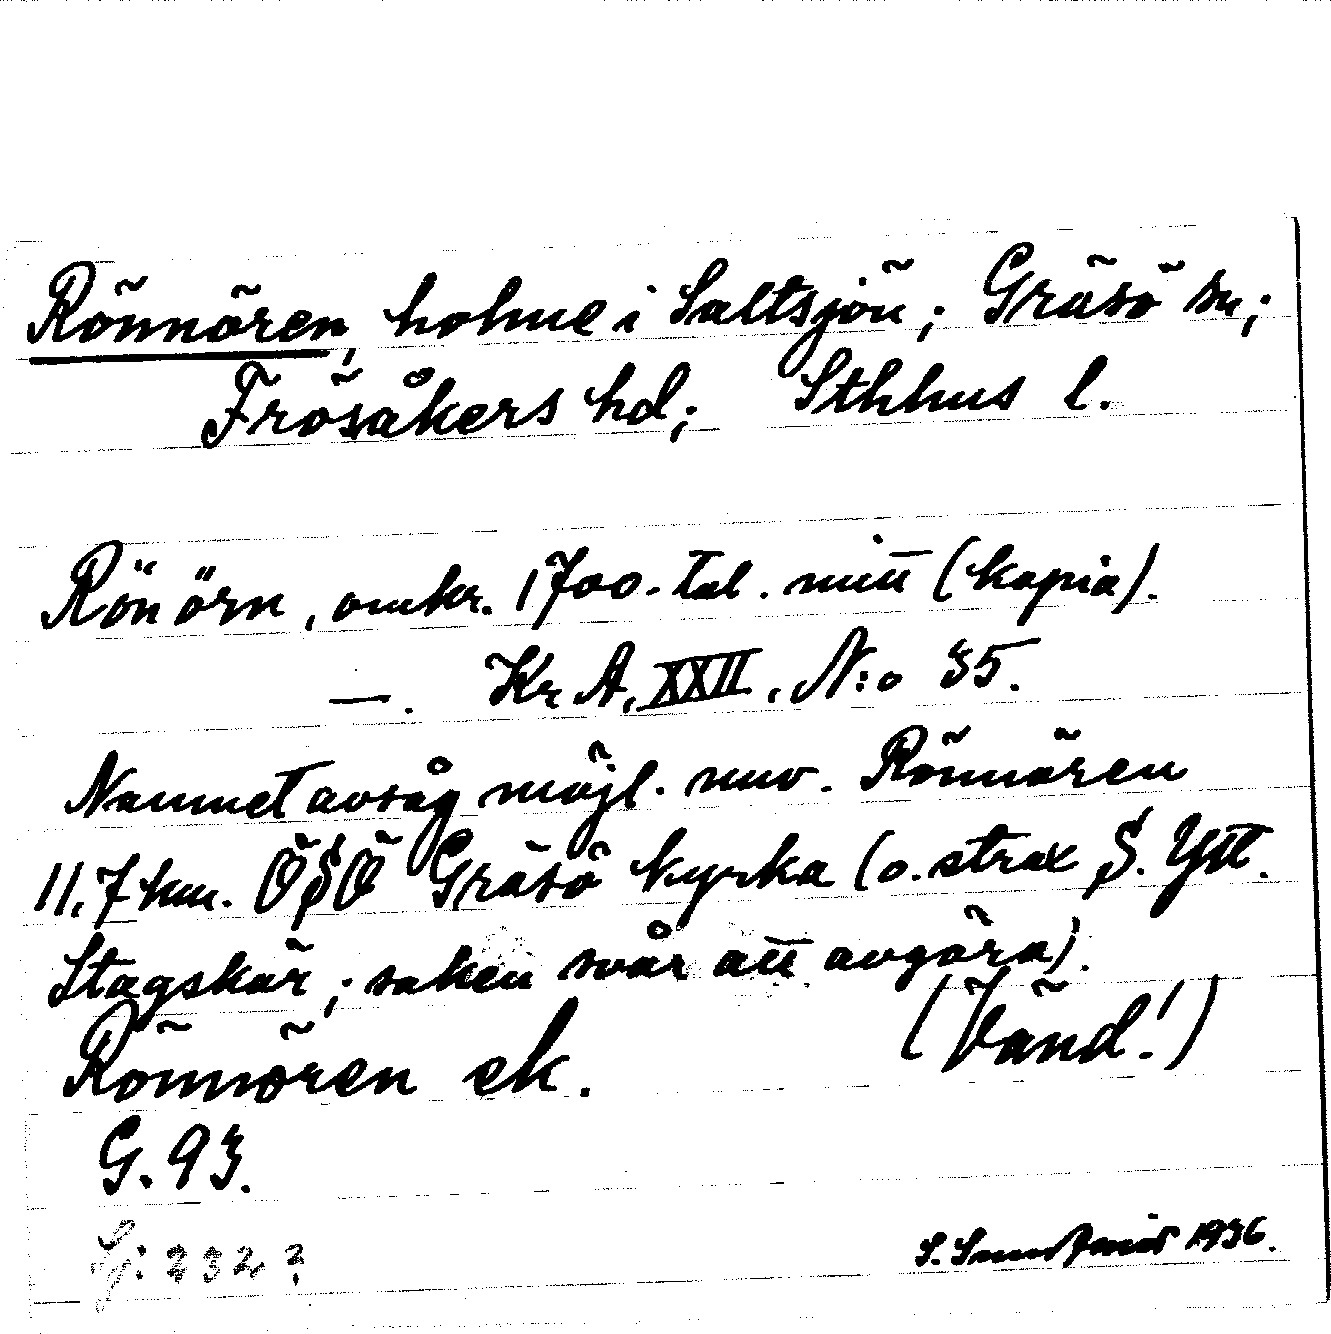 Rönnören, holme i Saltsjön; Gräsö sn;
Frösåkers hd; Sthlms l.
Rön örn, omkr. 1700-tal. mitt (kopia).
—. Kr A, XXII, N:o 35.
Namnet avsåg möjl. nuv. Rönnören
11,7 km. ÖSÖ Gräsö kyrka (o. strax S. Ytt.
Stagskär; saken svår att avgöra).
Rönnören ek. (Vänd!)
G. 93.
232?
1936.